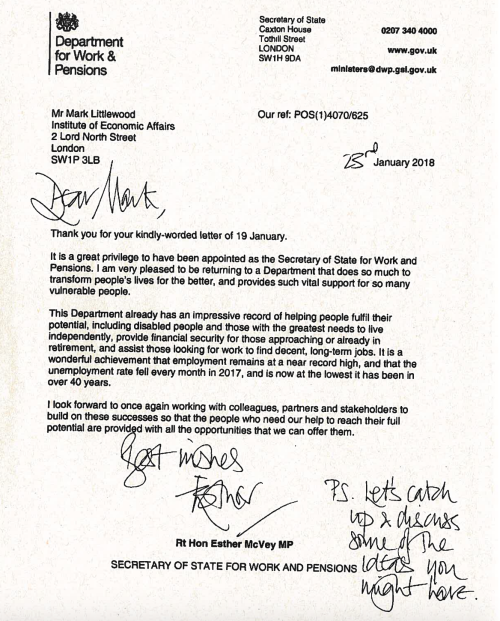 Department
for Work &
Pensions
Secretary of State
Caxton House
Tothill Street
LONDON
SW1H 9DA
0207 340 4000
www.gov.uk
ministers@dwp.gsi.gov.uk
Mr Mark Littlewood
Institute of Economic Affairs
2 Lord North Street
London
SW1P 3LB
Our ref: POS(1)4070/625
23rd January 2018
Dear Mark,
Thank you for your kindly-worded letter of 19 January.
It is a great privilege to have been appointed as the Secretary of State for Work and
Pensions. I am very pleased to be returning to a Department that does so much to
transform people's lives for the better, and provides such vital support for so many
vulnerable people.
This Department already has an impressive record of helping people fulfil their
potential, including disabled people and those with the greatest needs to live
independently, provide financial security for those approaching or already in
retirement, and assist those looking for work to find decent, long-term jobs. It is a
wonderful achievement that employment remains at a near record high, and that the
unemployment rate fell every month in 2017, and is now at the lowest it has been in
over 40 years.
I look forward to once again working with colleagues, partners and stakeholders to
build on these successes so that the people who need our help to reach their full
potential are provided with all the opportunities that we can offer them.
Best wishes
Esther
Rt Hon Esther McVey MP
SECRETARY OF STATE FOR WORK AND PENSIONS
P.S. Let's catch
up & discuss
some of the
ideas you
might have.